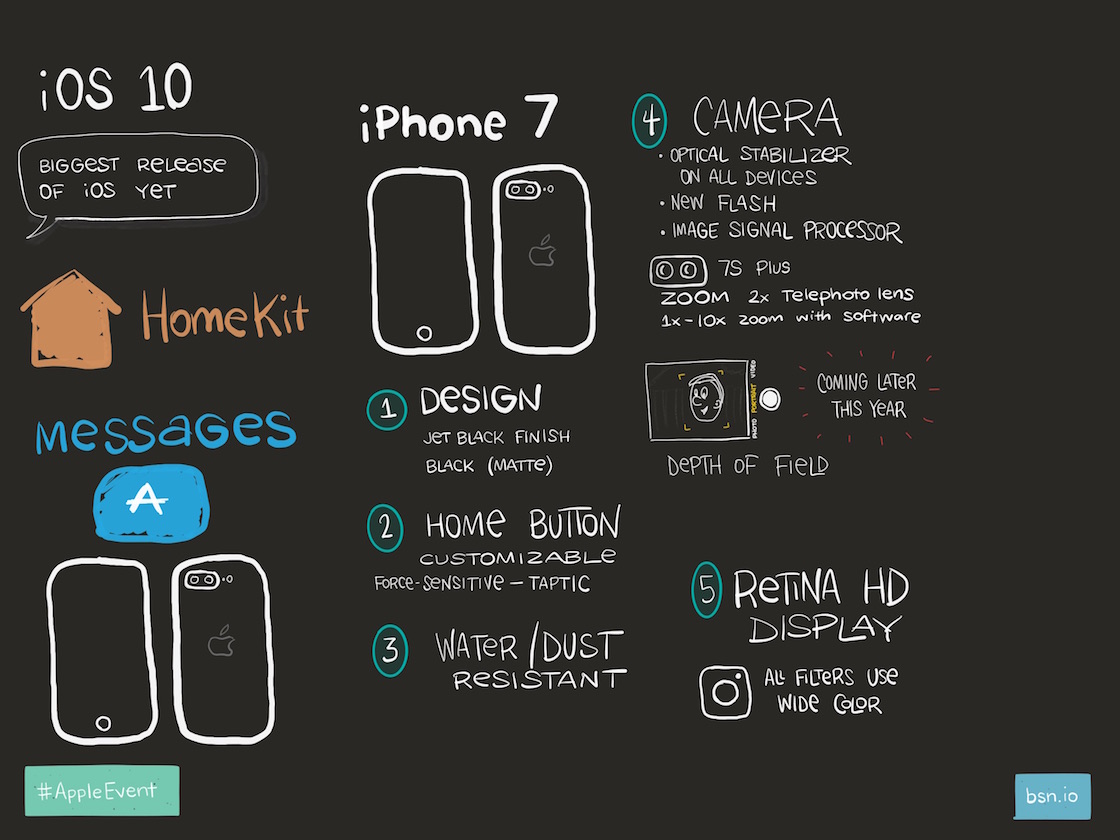 iOS 10
BIGGEST RELEASE
OF iOS YET
HomeKit
MESSAGES
A
#AppleEvent
iPhone 7
1 DESIGN
JET BLACK FINISH
BLACK (MATTE)
2 HOME BUTTON
CUSTOMIZABLE
FORCE-SENSITIVE – TAPTIC
3 WATER/DUST
RESISTANT
4 CAMERA
• OPTICAL STABILIZER
ON ALL DEVICES
• NEW FLASH
• IMAGE SIGNAL PROCESSOR
7S PLUS
ZOOM 2x Telephoto lens
1x-10x zoom with software
PHOTO PORTRAIT VIDEO
COMING LATER
THIS YEAR
DEPTH OF FIELD
5 RETINA HD
DISPLAY
ALL FILTERS USE
WIDE COLOR
bsn.io